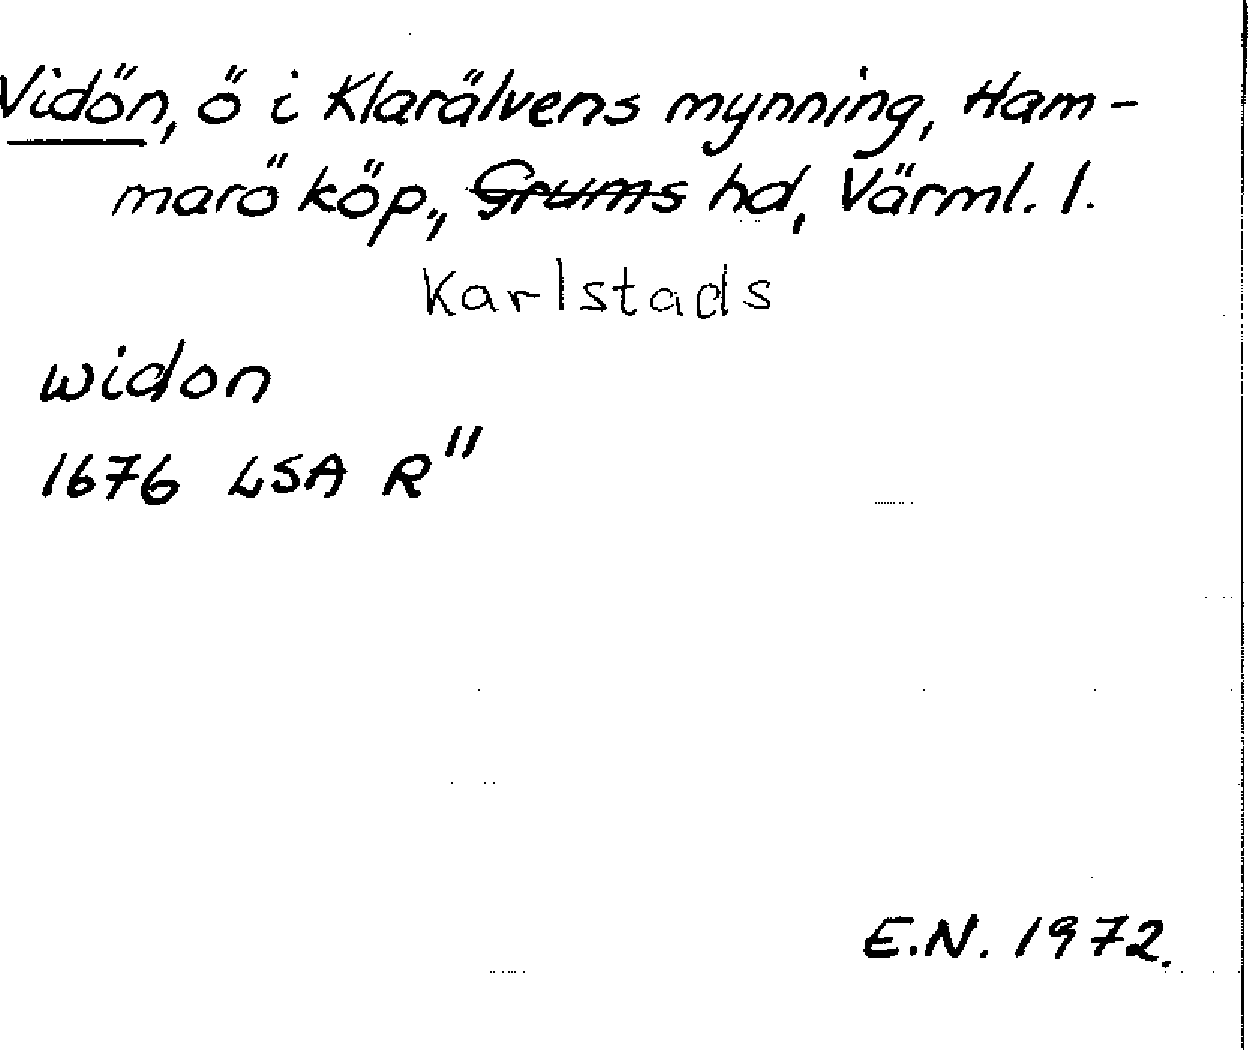 Vidön, ö i Klarälvens mynning, Ham-
marö köp., Grums hd, Värml. l.
Karlstads
widon
1676 LSA R"
E.N. 1972.